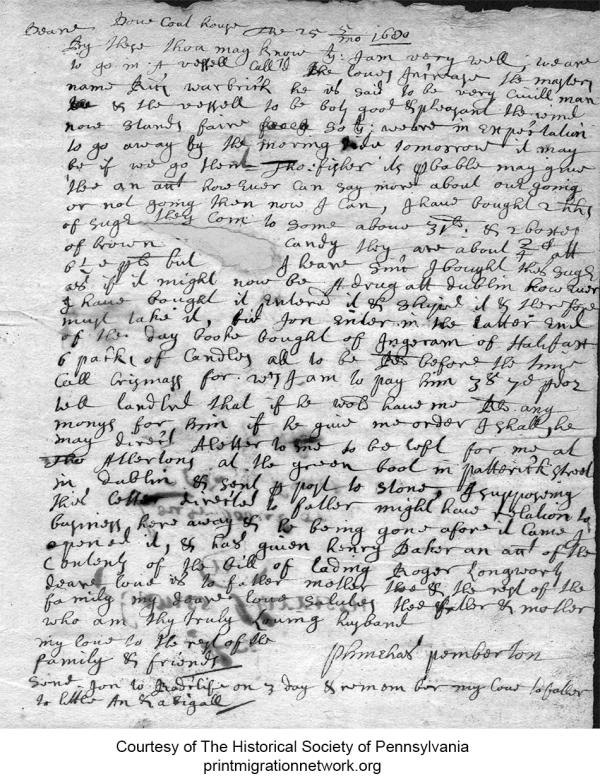 Deare Dove Coat house the 25 5 mo 1680
By these thou may know yt: I am very well, we are
to go in A vessell Call'd the loves Increase the masters
name Ric: warbrick he is said to be very Civill man
& the vessell to be both good & pleasant the wind
now stands faire so yt: we are in Expectation
to go away by the morning tide tomorrow it may
be if we go then Tho: fisher its pbable may give
the an acct how Ever Can say more about our going
or not going then now I can, I have bought 2 hhs
of Sugr they Com to some above 31lb. & 2 boxes
of brown Candy they are about att
6½ pr lb but I heare sinc I bought the Sugr
as if it might now be A drug att dublin how Ever
I have bought it Entered it & Shiped it & therefore
must take it, bid Jon Enter in the latter End
of the day booke bought of Ingeram of Halifax
6 packs of Candles all to be before the time
Call Crismass for wch I am to pay him 3s 7d p doz
tell landlrd that if he wold have me any
monys for him if he give me order I shall, he
may direct A letter to me to be left for me at
Tho Atkertons at the green boot in patterick street
in dublin & sent p post to stone, I supposing
this letter directed to father might have relation to
business here away & he being gone afore it came I
opened it, & has given henry Baker an acct of the
Contents of the bill of lading Roger Longworth
deare love is to father mother thee & the rest of the
family my deare love salutes thee father & mother
who am thy truly Loving husband
my love to the rest of the
family & friends
phinehas pemberton
Send Jon to on 3 day & remember my love to father
to little An & abigall
Courtesy of The Historical Society of Pennsylvania
printmigrationnetwork.org